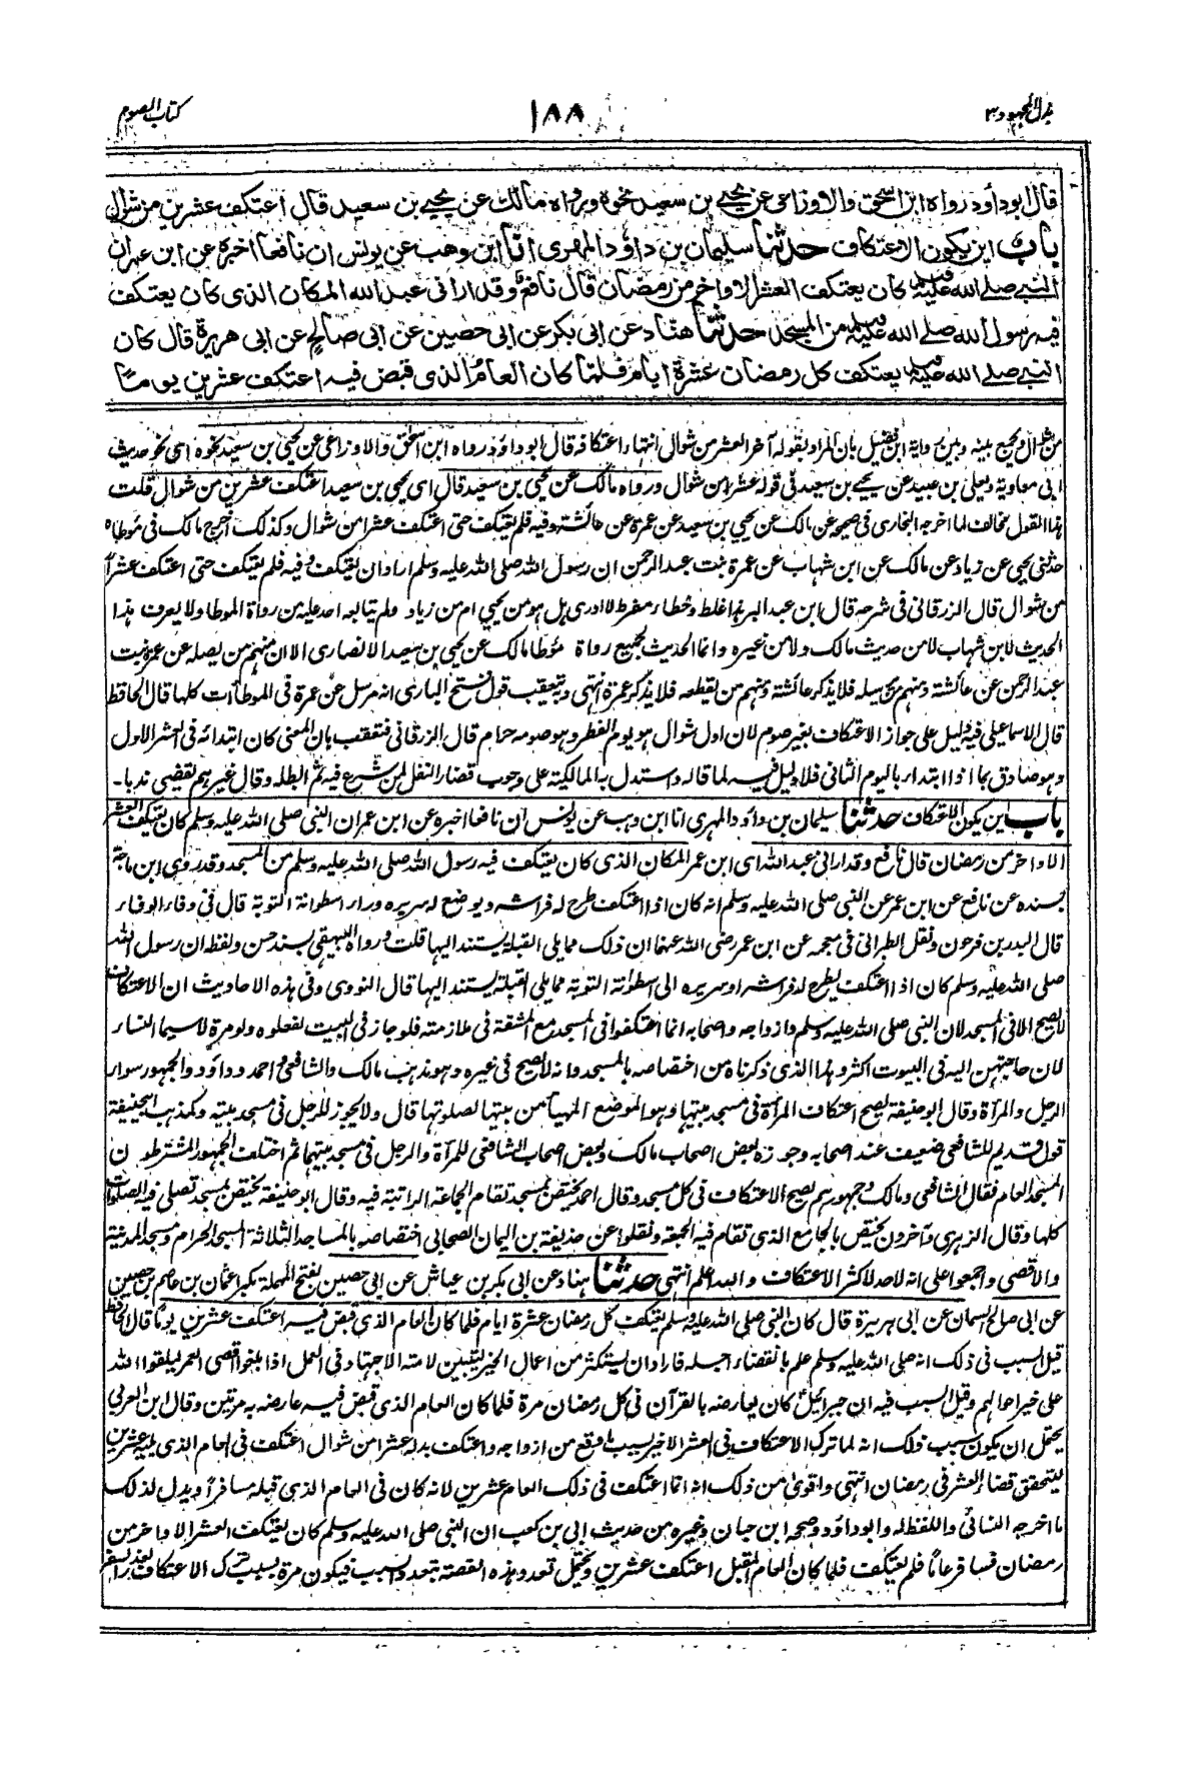 بذل المجهود ٣
١٨٨
كتاب الصوم
قال ابو داؤد رواه ابن اسحق والاوزاعى عن يحيى بن سعيد نحوه ورواه مالك عن يحيى بن سعيد قال اعتكف عشرين من شوال
باب اين يكون الاعتكاف حدثنا سليمان بن داؤد المهرى انا ابن وهب عن يونس ان نافعا اخبره عن ابن عمر ان
النبي صلى الله عليه وسلم كان يعتكف العشر الاواخر من رمضان قال نافع وقد ارانى عبد الله المكان الذى كان يعتكف
فيه رسول الله صلى الله عليه وسلم من المسجد حدثنا هناد عن ابى بكر عن ابى حصين عن ابى صالح عن ابى هريرة قال كان
النبي صلى الله عليه وسلم يعتكف كل رمضان عشرة ايام فلما كان العام الذى قبض فيه اعتكف عشرين يوما
من شوال ويجمع بينه وبين رواية ابن فضيل بان المراد بقوله آخر العشر من شوال انتهاء اعتكافه قال ابو داؤد رواه ابن اسحق والاوزاعى عن يحيى بن سعيد نحوه اى نحو حديث
ابى معاوية ويعلى بن عبيد عن يحيى بن سعيد فى قوله عشرا من شوال ورواه مالك عن يحيى بن سعيد قال اى يحيى بن سعيد اعتكف عشرين من شوال قلت
هذا القول مخالف لما اخرجه البخارى فى صحيحه عن مالك عن يحيى بن سعيد عن عمرة عن عائشة وفيه فلم يعتكف حتى اعتكف عشرا من شوال وكذلك اخرج مالك فى مؤطاه
حدثنى يحيى عن زياد عن مالك عن ابن شهاب عن عمرة بنت عبد الرحمن ان رسول الله صلى الله عليه وسلم اراد ان يعتكف وفيه فلم يعتكف حتى اعتكف عشرا
من شوال قال الزرقانى فى شرحه قال ابن عبد البر هذا غلط وخطاء مفرط لا ادرى هل هو من يحيى ام من زياد ولم يتابعه احد عليه من رواة الموطا ولا يعرف هذا
الحديث لابن شهاب لا من حديث مالك ولا من غيره وانما الحديث لجميع رواة مؤطا مالك عن يحيى بن سعيد الانصارى الا ان منهم من يصله عن عمرة بنت
عبد الرحمن عن عائشة ومنهم من يرسله فلا يذكر عائشة ومنهم من يقطعه فلا يذكر عمرة انتهى وبه يتعقب قول فتح البارى انه مرسل عن عمرة فى الموطآت كلها قال الحافظ
قال الاسماعيلى فيه دليل على جواز الاعتكاف بغير صوم لان اول شوال هو يوم الفطر وهو صومه حرام قال الزرقانى فتعقب بان المعنى كان ابتدائه فى العشر الاول
وهو صادق بما اذا ابتدأ باليوم الثانى فلا دليل فيه لما قاله واستدل به المالكية على وجوب قضاء النفل لمن شرع فيه ثم ابطله وقال غيرهم يقضى ندبا۔
باب اين يكون الاعتكاف حدثنا سليمان بن داؤد المهرى انا ابن وهب عن يونس ان نافعا اخبره عن ابن عمر ان النبى صلى الله عليه وسلم كان يعتكف العشر
الاواخر من رمضان قال نافع وقد ارانى عبد الله اى ابن عمر المكان الذى كان يعتكف فيه رسول الله صلى الله عليه وسلم من المسجد وقد روى ابن ماجة
بسنده عن نافع عن ابن عمر عن النبى صلى الله عليه وسلم انه كان اذا اعتكف طرح له فراشه ويوضع له سريره وراء اسطوانة التوبة قال فى وفاء الوفاء
قال البدر بن فرحون ونقل الطبرانى فى معجمه عن ابن عمر رضى الله عنهما ان ذلك مما يلى القبلة يستند اليها قلت ورواه البيهقى بسند حسن ولفظه ان رسول الله
صلى الله عليه وسلم كان اذا اعتكف يطرح له فراشه او سريره الى اسطوانة التوبة مما يلى القبلة يستند اليها قال النووى وفى هذه الاحاديث ان الاعتكاف
لا يصح الا فى المسجد لان النبى صلى الله عليه وسلم وازواجه واصحابه انما اعتكفوا فى المسجد مع المشقة فى ملازمته فلو جاز فى البيت لفعلوه ولو مرة لا سيما النساء
لان حاجتهن اليه فى البيوت اكثر وهذا الذى ذكرناه من اختصاصه بالمسجد وانه لا يصح فى غيره وهو مذهب مالك والشافعى واحمد وداؤد والجمهور سواء
الرجل والمرأة وقال ابو حنيفة يصح اعتكاف المرأة فى مسجد بيتها وهو الموضع المهيأ من بيتها لصلوتها قال ولا يجوز للرجل فى مسجد بيته وكمذهب ابيحنيفة
قول قديم للشافعى ضعيف عند اصحابه وجوزه بعض اصحاب مالك وبعض اصحاب الشافعى للمرأة والرجل فى مسجد بيتهما ثم اختلف الجمهور المشترطون
المسجد العام فقال الشافعى ومالك وجمهورهم يصح الاعتكاف فى كل مسجد وقال احمد يختص بمسجد تقام الجماعة الراتبة فيه وقال ابو حنيفة يختص بمسجد تصلى فيه الصلوات
كلها وقال الزهرى وآخرون يختص بالجامع الذى تقام فيه الجمعة ونقلوا عن حذيفة بن اليمان الصحابى اختصاصه بالمساجد الثلاثة المسجد الحرام ومسجد المدينة
والاقصى واجمعوا على انه لا حد لاكثر الاعتكاف والله اعلم انتهى حدثنا هناد عن ابى بكر بن عياش عن ابى حصين بفتح المهملة مكبرا عثمان بن عاصم بن حصين
عن ابى صالح السمان عن ابى هريرة قال كان النبى صلى الله عليه وسلم يعتكف كل رمضان عشرة ايام فلما كان العام الذى قبض فيه اعتكف عشرين يوما قال الحافظ
قيل السبب فى ذلك انه صلى الله عليه وسلم علم بانقضاء اجله فاراد ان يستكثر من اعمال الخير ليتبين لامته الاجتهاد فى العمل اذا بلغوا اقصى العمر ليلقوا الله
على خير احوالهم وقيل السبب فيه ان جبرائيل كان يعارضه بالقرآن فى كل رمضان مرة فلما كان العام الذى قبض فيه عارضه به مرتين وقال ابن العربى
يحتمل ان يكون سبب ذلك انه لما ترك الاعتكاف فى العشر الاخير بسبب ما وقع من ازواجه واعتكف بدله عشرا من شوال اعتكف فى العام الذى يليه عشرين
ليتحقق قضاء العشر فى رمضان انتهى واقوى من ذلك انه انما اعتكف فى ذلك العام عشرين لانه كان فى العام الذى قبله مسافرا ويدل لذلك
ما اخرجه النسائى واللفظ له وابو داؤد وصححه ابن حبان وغيره من حديث ابى بن كعب ان النبى صلى الله عليه وسلم كان يعتكف العشر الاواخر من
رمضان فسافر عاما فلم يعتكف فلما كان العام المقبل اعتكف عشرين ويحتمل تعدد هذه القصة بتعدد السبب فيكون مرة بسبب ترك الاعتكاف لعذر السفر